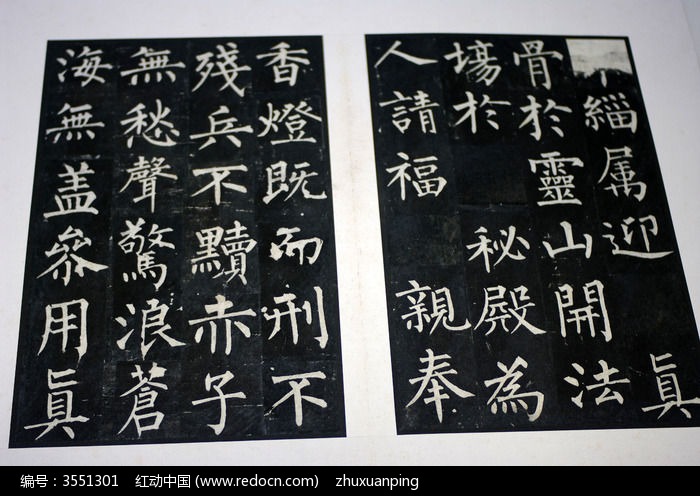 緇属迎真
骨於靈山開法
塲於秘殿為
人請福親奉
香燈既而刑不
殘兵不黷赤子
無愁聲驚浪蒼
海無盖叅用真
编号：3551301 红动中国 (www.redocn.com) zhuxuanping